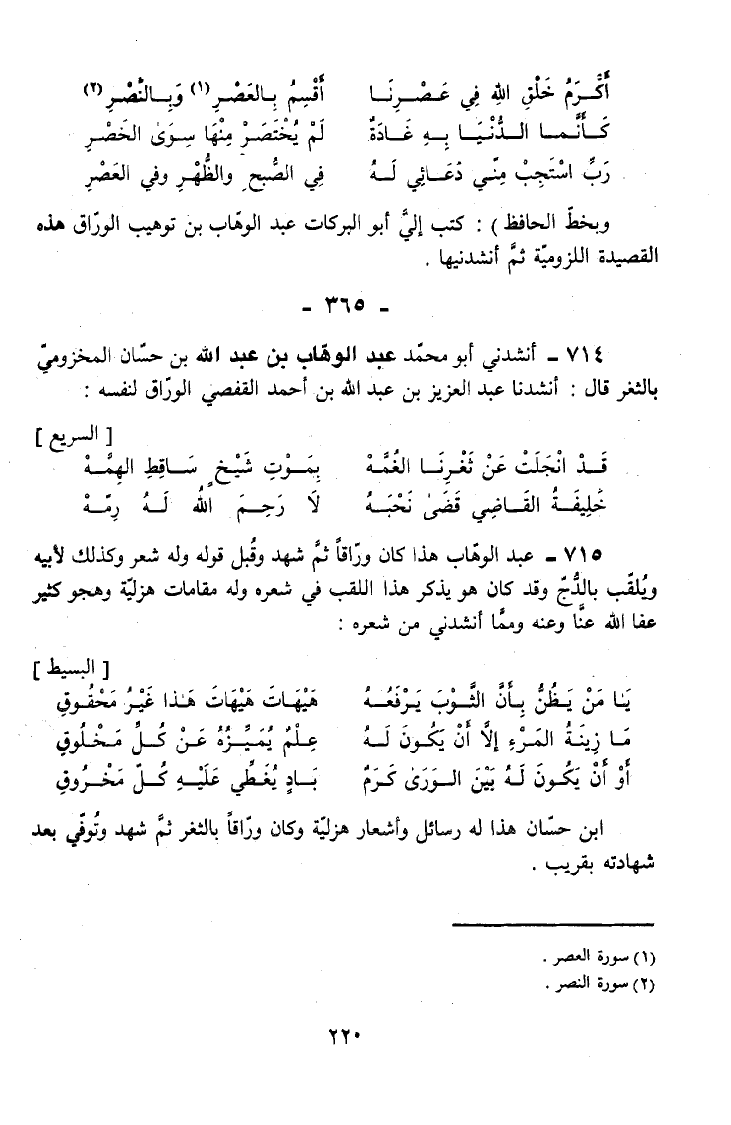 أَكْرَمُ خَلْقِ اللهِ فِي عَصْرِنَا أُقْسِمُ بِالعَصْرِ (١) وَبِالنَّصْرِ (٢)
كَأَنَّما الدُّنْيَا بِهِ غَادَةٌ لَمْ يُخْتَصَرْ مِنْهَا سِوَىٰ الخَصْرِ
رَبِّ اسْتَجِبْ مِنّي دُعَائِي لَهُ فِي الصُّبحِ والظُّهْرِ وفي العَصْرِ
وبخطّ الحافظ ) : كتب إليَّ أبو البركات عبد الوهّاب بن توهيب الورّاق هذه
القصيدة اللزوميّة ثمَّ أنشدنيها .
- ٣٦٥ -
٧١٤ - أنشدني أبو محمّد عبد الوهّاب بن عبد الله بن حسّان المخزوميّ
بالثغر قال : أنشدنا عبد العزيز بن عبد الله بن أحمد القفصي الورّاق لنفسه :
[ السريع ]
قَدْ انْجَلَتْ عَنْ ثَغْرِنَا الغُمَّهْ بِمَوْتِ شَيْخٍ سَاقِطِ الهِمَّهْ
خَلِيفَةُ القَاضِي قَضَىٰ نَحْبَهُ لَا رَحِمَ اللهُ لَهُ رِمَّهْ
٧١٥ - عبد الوهّاب هذا كان ورّاقاً ثمَّ شهد وقُبل قوله وله شعر وكذلك لأبيه
ويُلقّب بالدُّجّ وقد كان هو يذكر هذا اللقب في شعره وله مقامات هزليّة وهجو كثير
عفا الله عنَّا وعنه وممَّا أنشدني من شعره :
[ البسيط ]
يَا مَنْ يَظُنُّ بِأَنَّ الثَّوْبَ يَرْفَعُهُ هَيْهَاتَ هَيْهَاتَ هَذا غَيْرُ مَحْقُوقِ
مَا زِينَةُ المَرْءِ إلَّا أَنْ يَكُونَ لَهُ عِلْمٌ يُمَيِّزُهُ عَنْ كُلِّ مَخْلُوقِ
أَوْ أَنْ يَكُونَ لَهُ بَيْنَ الوَرَىٰ كَرَمٌ بَادٍ يُغَطِّي عَلَيْهِ كُلَّ مَخْرُوقِ
ابن حسّان هذا له رسائل وأشعار هزليّة وكان ورّاقاً بالثغر ثمَّ شهد وتُوفّي بعد
شهادته بقريب .
(١) سورة العصر .
(٢) سورة النصر .
٢٢٠